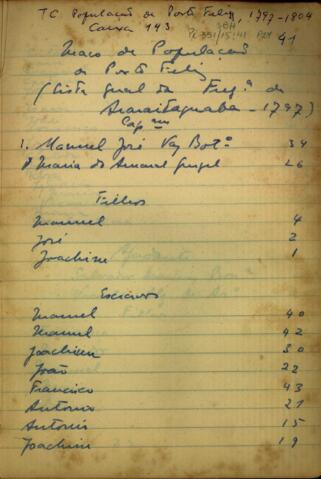 TC População de Porto Feliz, 1797-1804
Caixa 143
91
Maço de População
de Porto Feliz
(Lista geral da Freg.ª de
Araraitaguaba - 1797)
Cap^am
1. Manuel José Vaz Bot.º 34
D Maria do Amaral Gurgel 26
Filhos
Manuel 4
José 2
Joachim 1
Escravos
Manuel 40
Manuel 42
Joachim 30
João 22
Francisco 43
Antonio 21
Antonio 15
Joachim 19